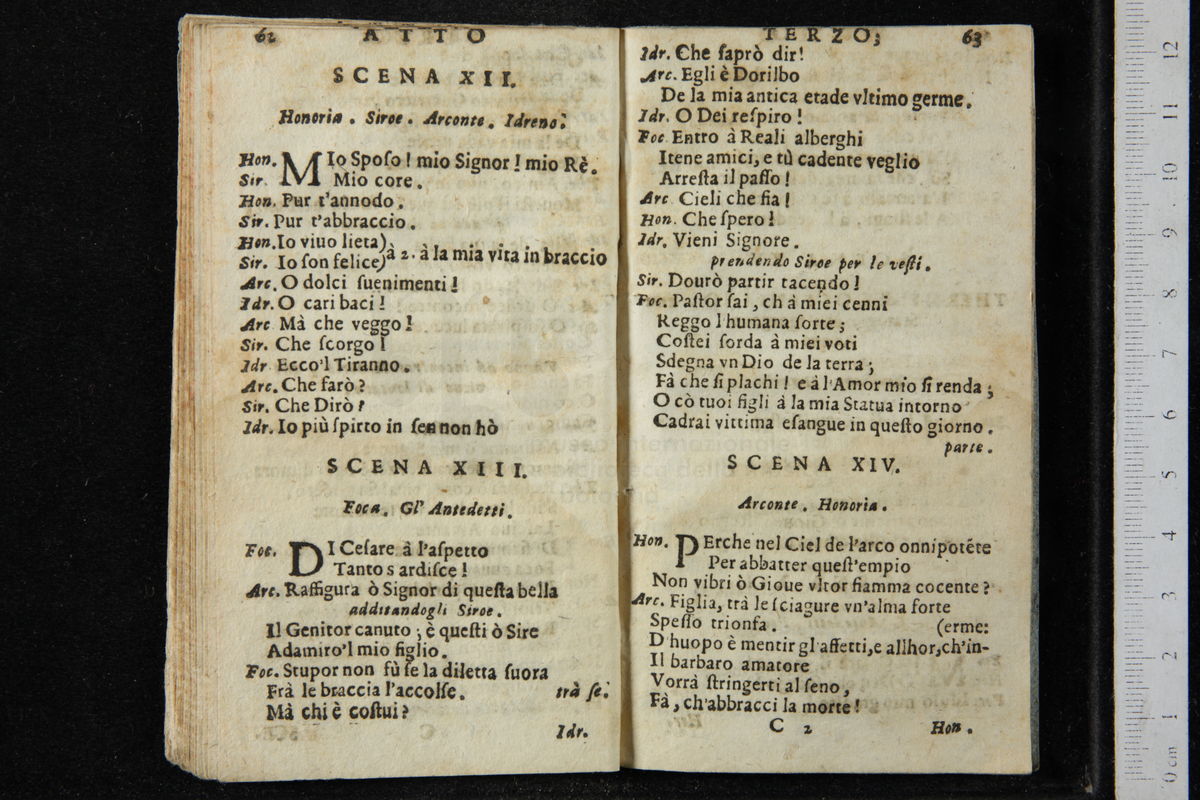 62 ATTO
SCENA XII.
Honoria. Siroe. Arconte. Idreno.
Hon. MIo Spoſo! mio Signor! mio Rè.
Sir. Mio core.
Hon. Pur t'annodo.
Sir. Pur t'abbraccio.
Hon. Io viuo lieta)
Sir. Io ſon felice) à 2. à la mia vita in braccio
Arc. O dolci ſuenimenti!
Idr. O cari baci!
Arc Mà che veggo!
Sir. Che ſcorgo!
Idr Ecco'l Tiranno.
Arc. Che farò?
Sir. Che Dirò?
Idr. Io più ſpirto in ſen non hò
SCENA XIII.
Foca. Gl' Antedetti.
Foc. DI Ceſare à l'aſpetto
Tanto s ardiſce!
Arc. Raffigura ò Signor di queſta bella
additandogli Siroe.
Il Genitor canuto; è queſti ò Sire
Adamiro'l mio figlio.
Foc. Stupor non fù ſe la diletta ſuora
Frà le braccia l'accolſe. trà ſe.
Mà chi è coſtui?
Idr.
TERZO; 63
Idr. Che ſaprò dir!
Arc. Egli è Dorilbo
De la mia antica etade vltimo germe.
Idr. O Dei reſpiro!
Foc Entro à Reali alberghi
Itene amici, e tù cadente veglio
Arreſta il paſſo!
Arc Cieli che fia!
Hon. Che ſpero!
Idr. Vieni Signore.
prendendo Siroe per le veſti.
Sir. Dourò partir tacendo!
Foc. Paſtor ſai, ch à miei cenni
Reggo l humana ſorte;
Coſtei ſorda à miei voti
Sdegna vn Dio de la terra;
Fà che ſi plachi! e à l'Amor mio ſi renda;
O cò tuoi figli à la mia Statua intorno
Cadrai vittima eſangue in queſto giorno.
parte.
SCENA XIV.
Arconte. Honoria.
Hon. PErche nel Ciel de l'arco onnipotẽte
Per abbatter queſt'empio
Non vibri ò Gioue vltor fiamma cocente?
Arc. Figlia, trà le ſciagure vn'alma forte
Speſſo trionfa. (erme:
D huopo è mentir gl'affetti, e allhor, ch'in-
Il barbaro amatore
Vorrà ſtringerti al ſeno,
Fà, ch'abbracci la morte!
C 2 Hon.
12
11
10
9
8
7
6
5
4
3
2
1
0 cm